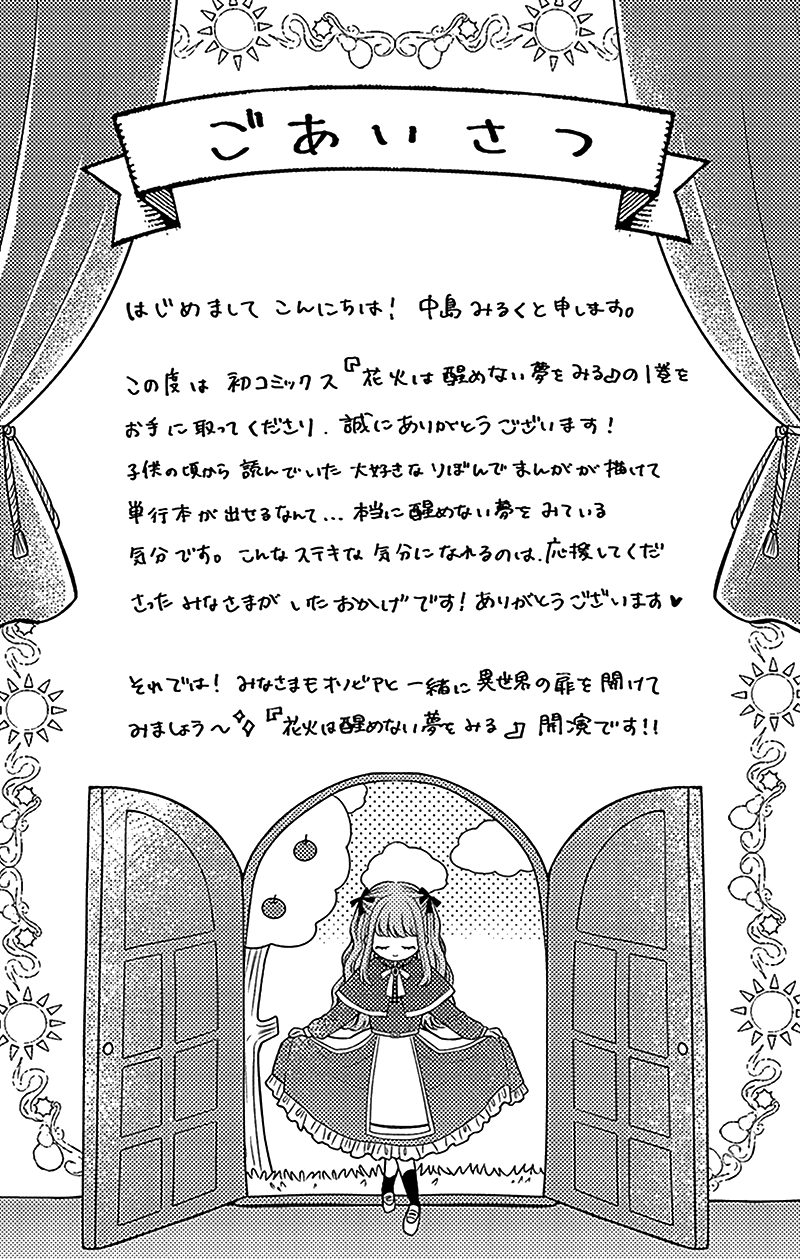 ごあいさつ
はじめまして こんにちは! 中島みるくと申します。
この度は 初コミックス『花火は醒めない夢をみる』の1巻を
お手に取ってくださり、誠にありがとうございます!
子供の頃から 読んでいた 大好きな りぼんで まんがが 描けて
単行本が 出せるなんて… 本当に 醒めない夢を みている
気分です。こんな ステキな 気分に なれるのは、応援してくだ
さった みなさまが いたおかげです! ありがとうございます♥
それでは! みなさまも オリビアと 一緒に 異世界の 扉を 開けて
みましょう〜✧『花火は醒めない夢をみる』開演です!!